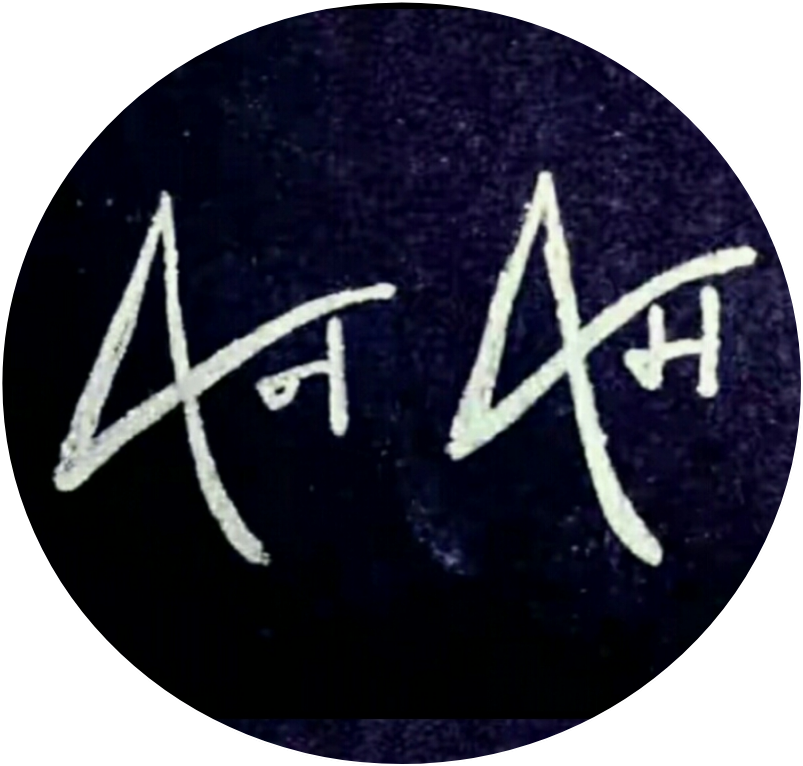 Aन Aम